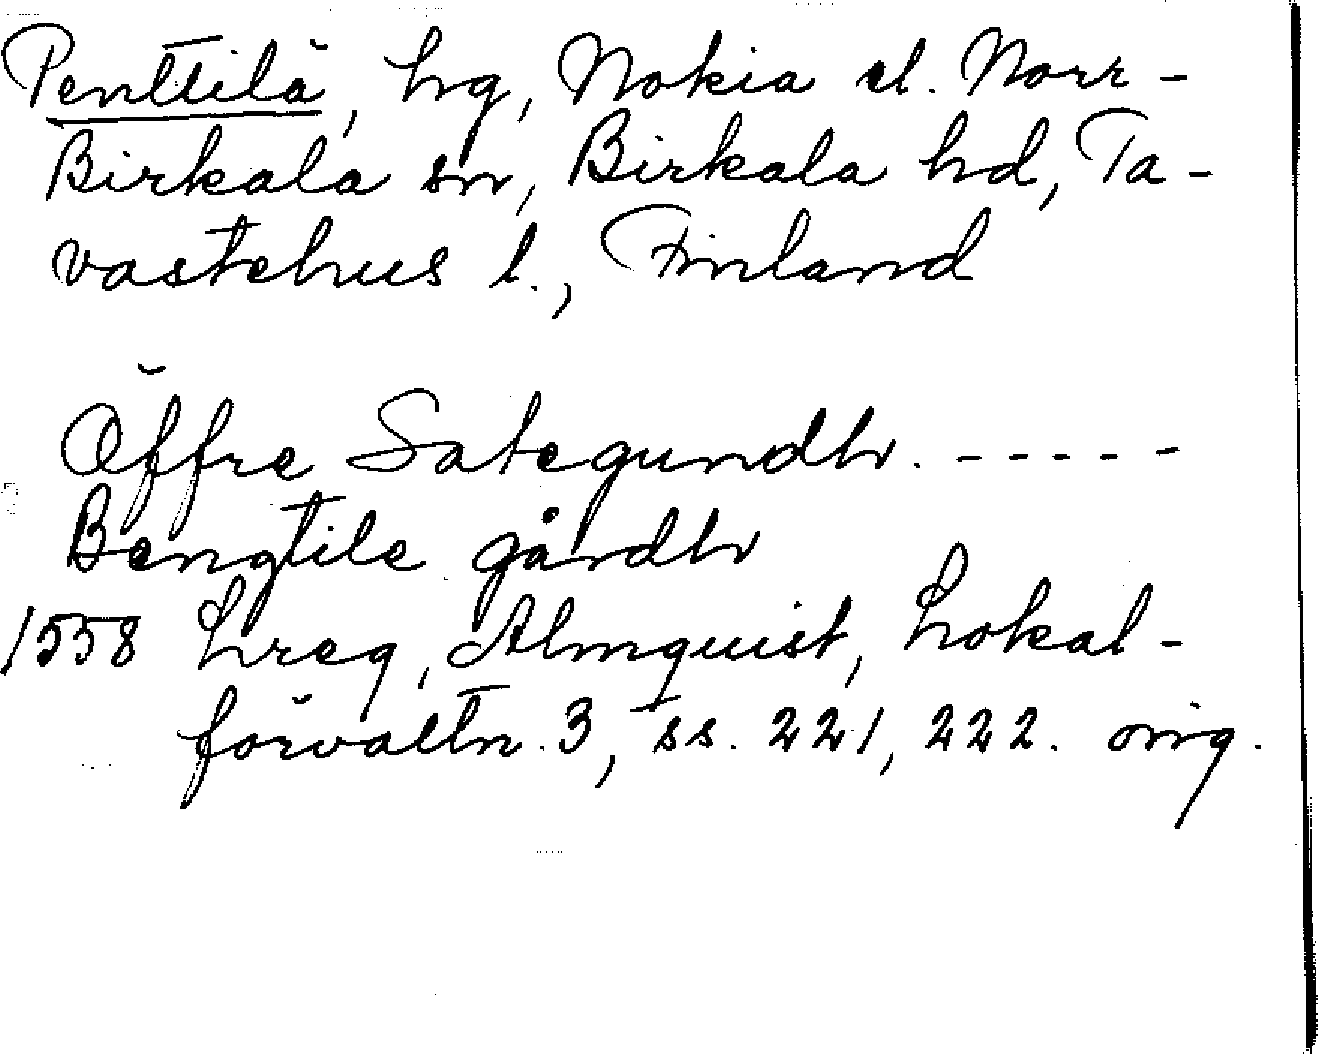 Penttilä, hg, Nokia el. Norr-
Birkala sn, Birkala hd, Ta-
vastehus l., Finland
Öffre Sategundhr. - - - - -
Bengtile gårdhr
1558 Lreg, Almquist, Lokal-
förvaltn. 3, ss. 221, 222. orig.